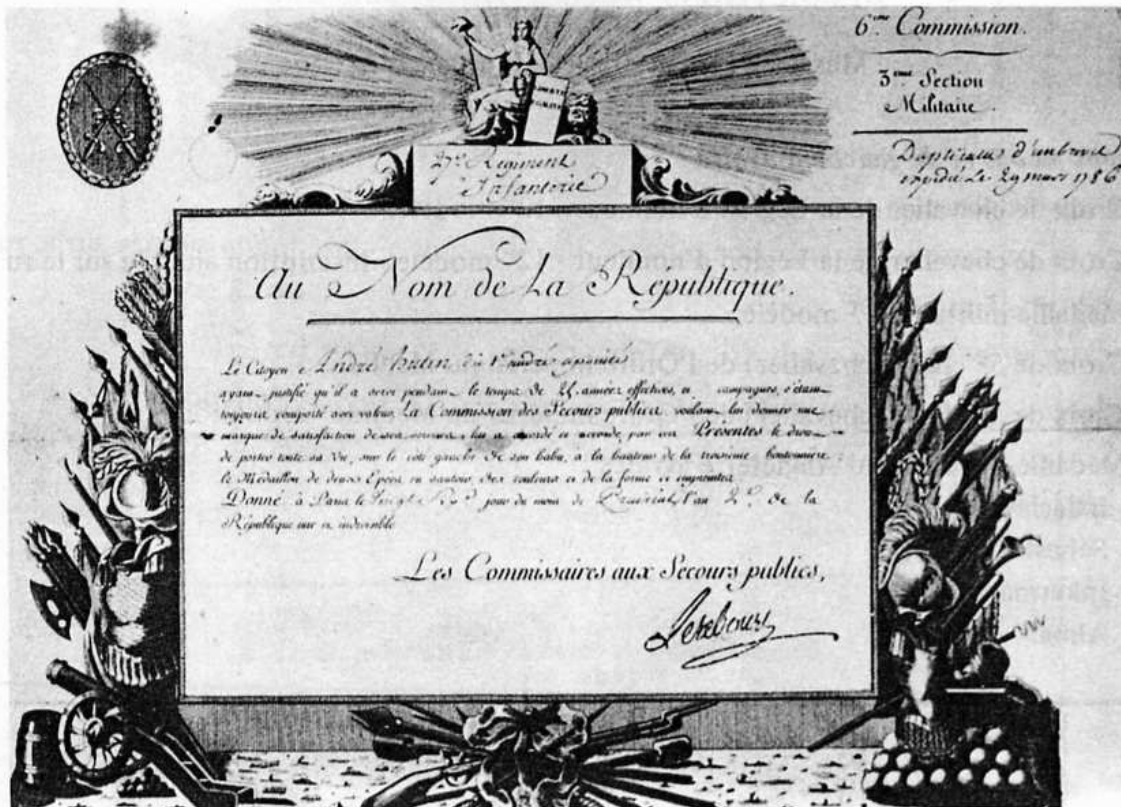 6.me Commission.
3.eme Section
Militaire.
d'un brevet
expédié Le 29 mars 1786
LIBERTÉ
ÉGALITÉ
Régiment
d'Infanterie
Au Nom de La République.
Le Citoyen André hutin
ayant justifié qu'il a servi pendant le temps de 24 années effectives, et campagnes, s'étant
toujours comporté avec valeur, La Commission des Secours publics voulant lui donner une
marque de satisfaction de ses services, lui a accordé et accorde par ces Présentes le droit
de porter toute sa vie, sur le côté gauche de son habit, à la hauteur de la troisième boutonnière,
le Médaillon de deux Épées en sautoir, des couleurs et de la forme ci empreintes.
Donné à Paris le jour du mois de l'an 2.e de la
République une et indivisible
Les Commissaires aux Secours publics,